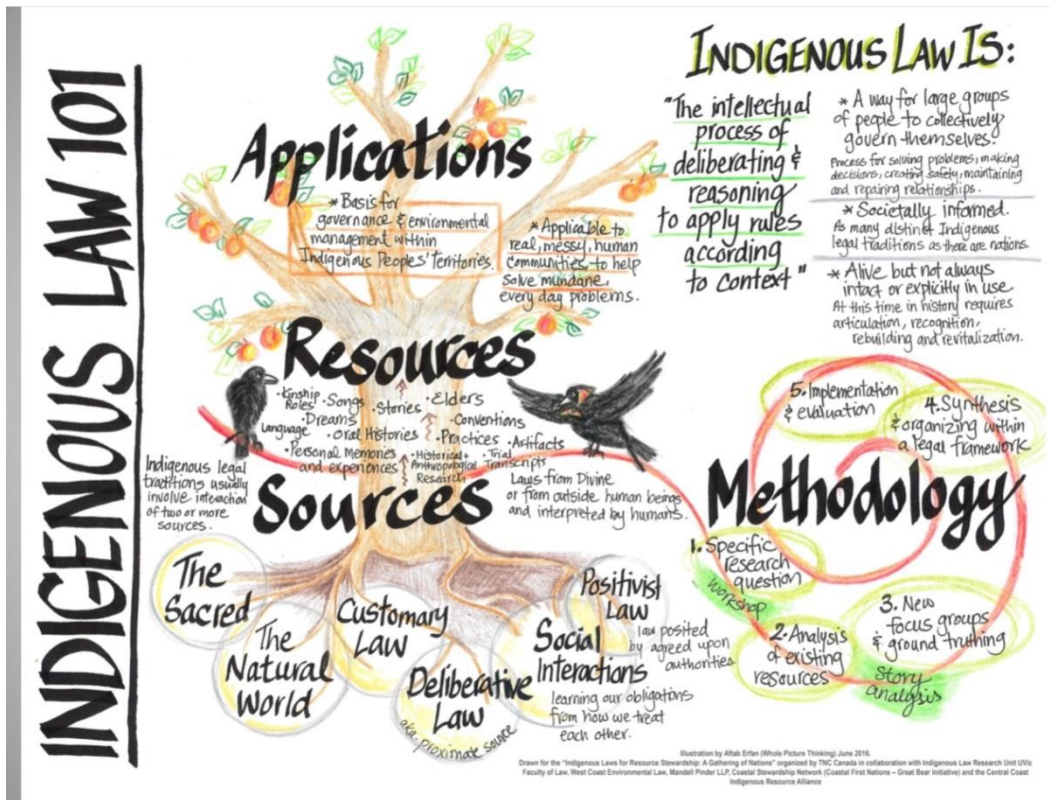 INDIGENOUS LAW 101
Applications
* Basis for
governance & environmental
management within
Indigenous Peoples' Territories.
* Applicable to
real, messy, human
communities, to help
solve mundane,
every day problems.
Resources
• Kinship
Roles
• Songs
• Stories
• Elders
• Dreams
• Conventions
Language
• Oral Histories
• Practices
• Artifacts
• Personal Memories
and experiences
• Historical +
Anthropological
Research
• Trial
Transcripts
Sources
Indigenous legal
traditions usually
involve interaction
of two or more
sources.
Laws from Divine
or from outside human beings
and interpreted by humans.
The
Sacred
The
Natural
World
Customary
Law
Deliberative
Law
aka. proximate source
Social
Interactions
learning our obligations
from how we treat
each other.
Positivist
Law
law posited
by agreed upon
authorities
INDIGENOUS LAW IS:
"The intellectual
process of
deliberating &
reasoning
to apply rules
according
to context"
* A way for large groups
of people to collectively
govern themselves.
Process for solving problems, making
decisions, creating safety, maintaining
and repairing relationships.
* Societally informed.
As many distinct Indigenous
legal traditions as there are nations.
* Alive but not always
intact or explicitly in use
At this time in history requires
articulation, recognition,
rebuilding and revitalization.
Methodology
1. Specific
research
question
Workshop
2. Analysis
of existing
resources
3. New
focus groups
& ground truthing
Story
analysis
4. Synthesis
& organizing within
a legal framework
5. Implementation
& evaluation
Illustration by Aftab Erfan (Whole Picture Thinking) June 2016.
Drawn for the "Indigenous Laws for Resource Stewardship: A Gathering of Nations" organized by TNC Canada in collaboration with Indigenous Law Research Unit UVic
Faculty of Law, West Coast Environmental Law, Mandell Pinder LLP, Coastal Stewardship Network (Coastal First Nations – Great Bear Initiative) and the Central Coast
Indigenous Resource Alliance